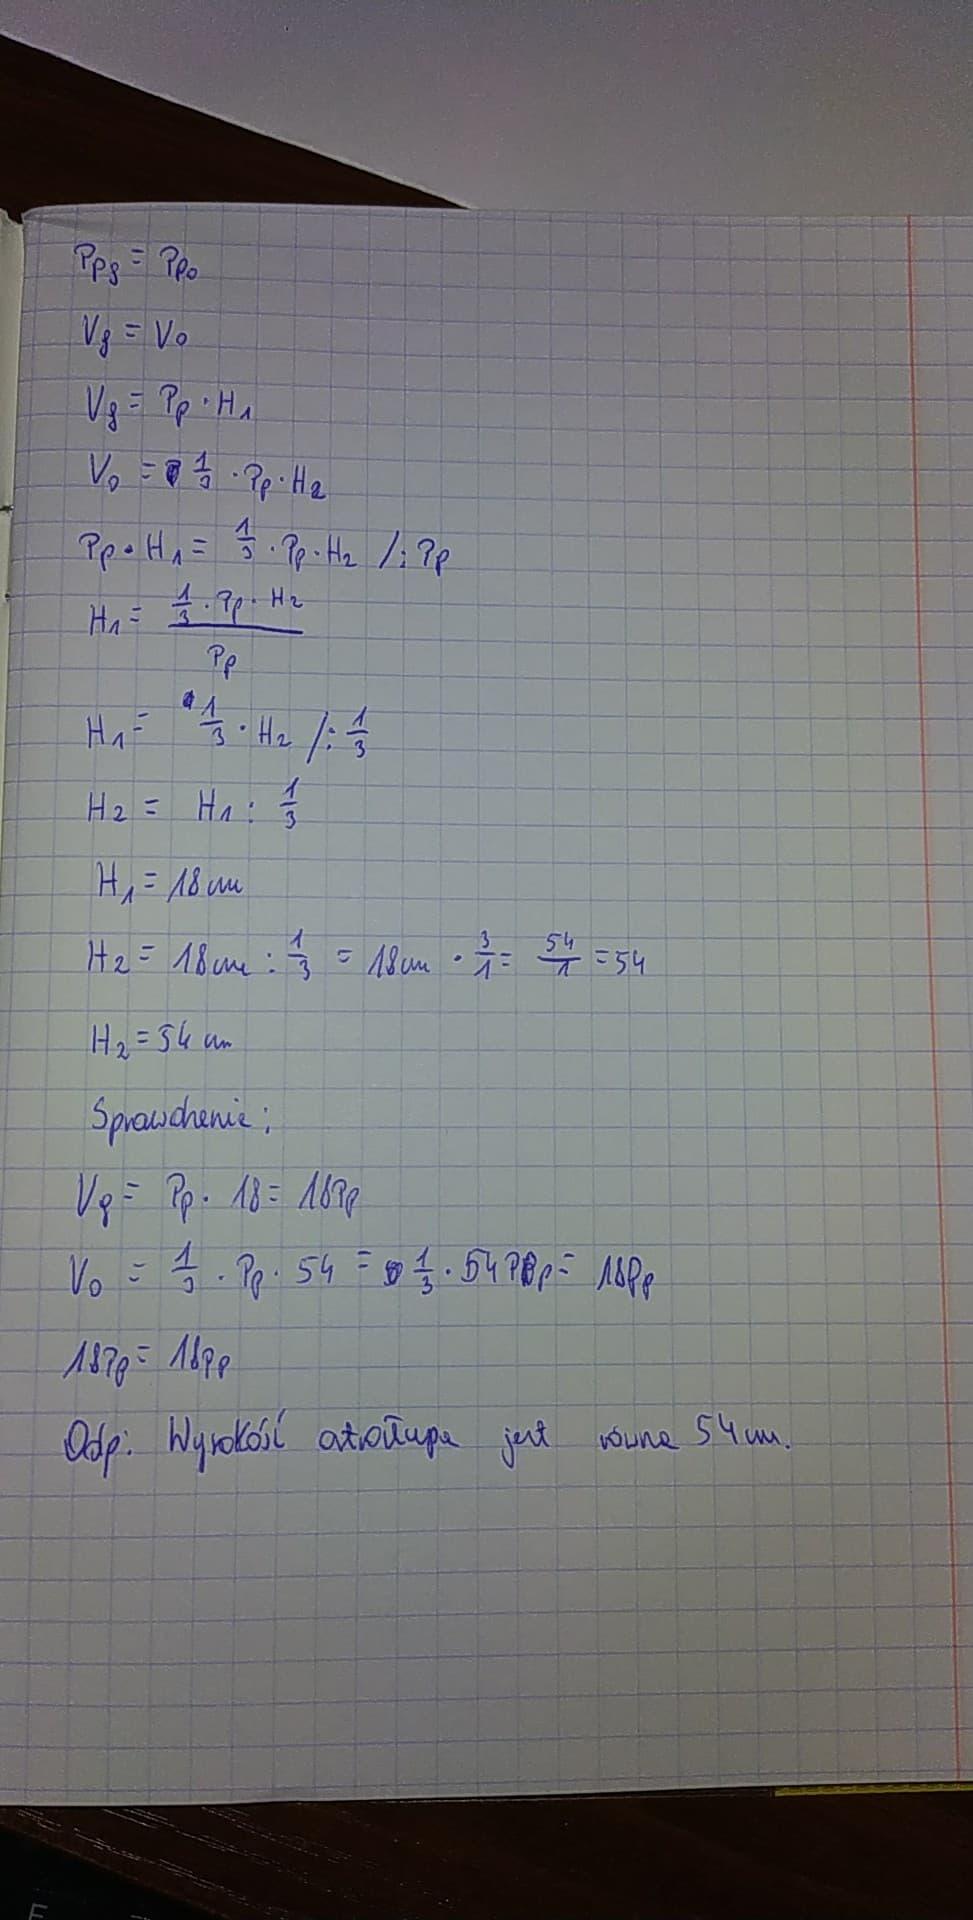 Ppg = Ppo
Vg = Vo
Vg = Pp · H1
Vo = 1/3 · Pp · H2
Pp · H1 = 1/3 · Pp · H2 /: Pp
H1 = (1/3 · Pp · H2)/Pp
H1 = 1/3 · H2 /: 1/3
H2 = H1 : 1/3
H1 = 18 cm
H2 = 18 cm : 1/3 = 18 cm · 3/1 = 54/1 = 54
H2 = 54 cm
Sprawdzenie:
Vg = Pp · 18 = 18Pp
Vo = 1/3 · Pp · 54 = 1/3 · 54 Pp = 18Pp
18Pp = 18Pp
Odp: Wysokość ostrosłupa jest równa 54 cm.